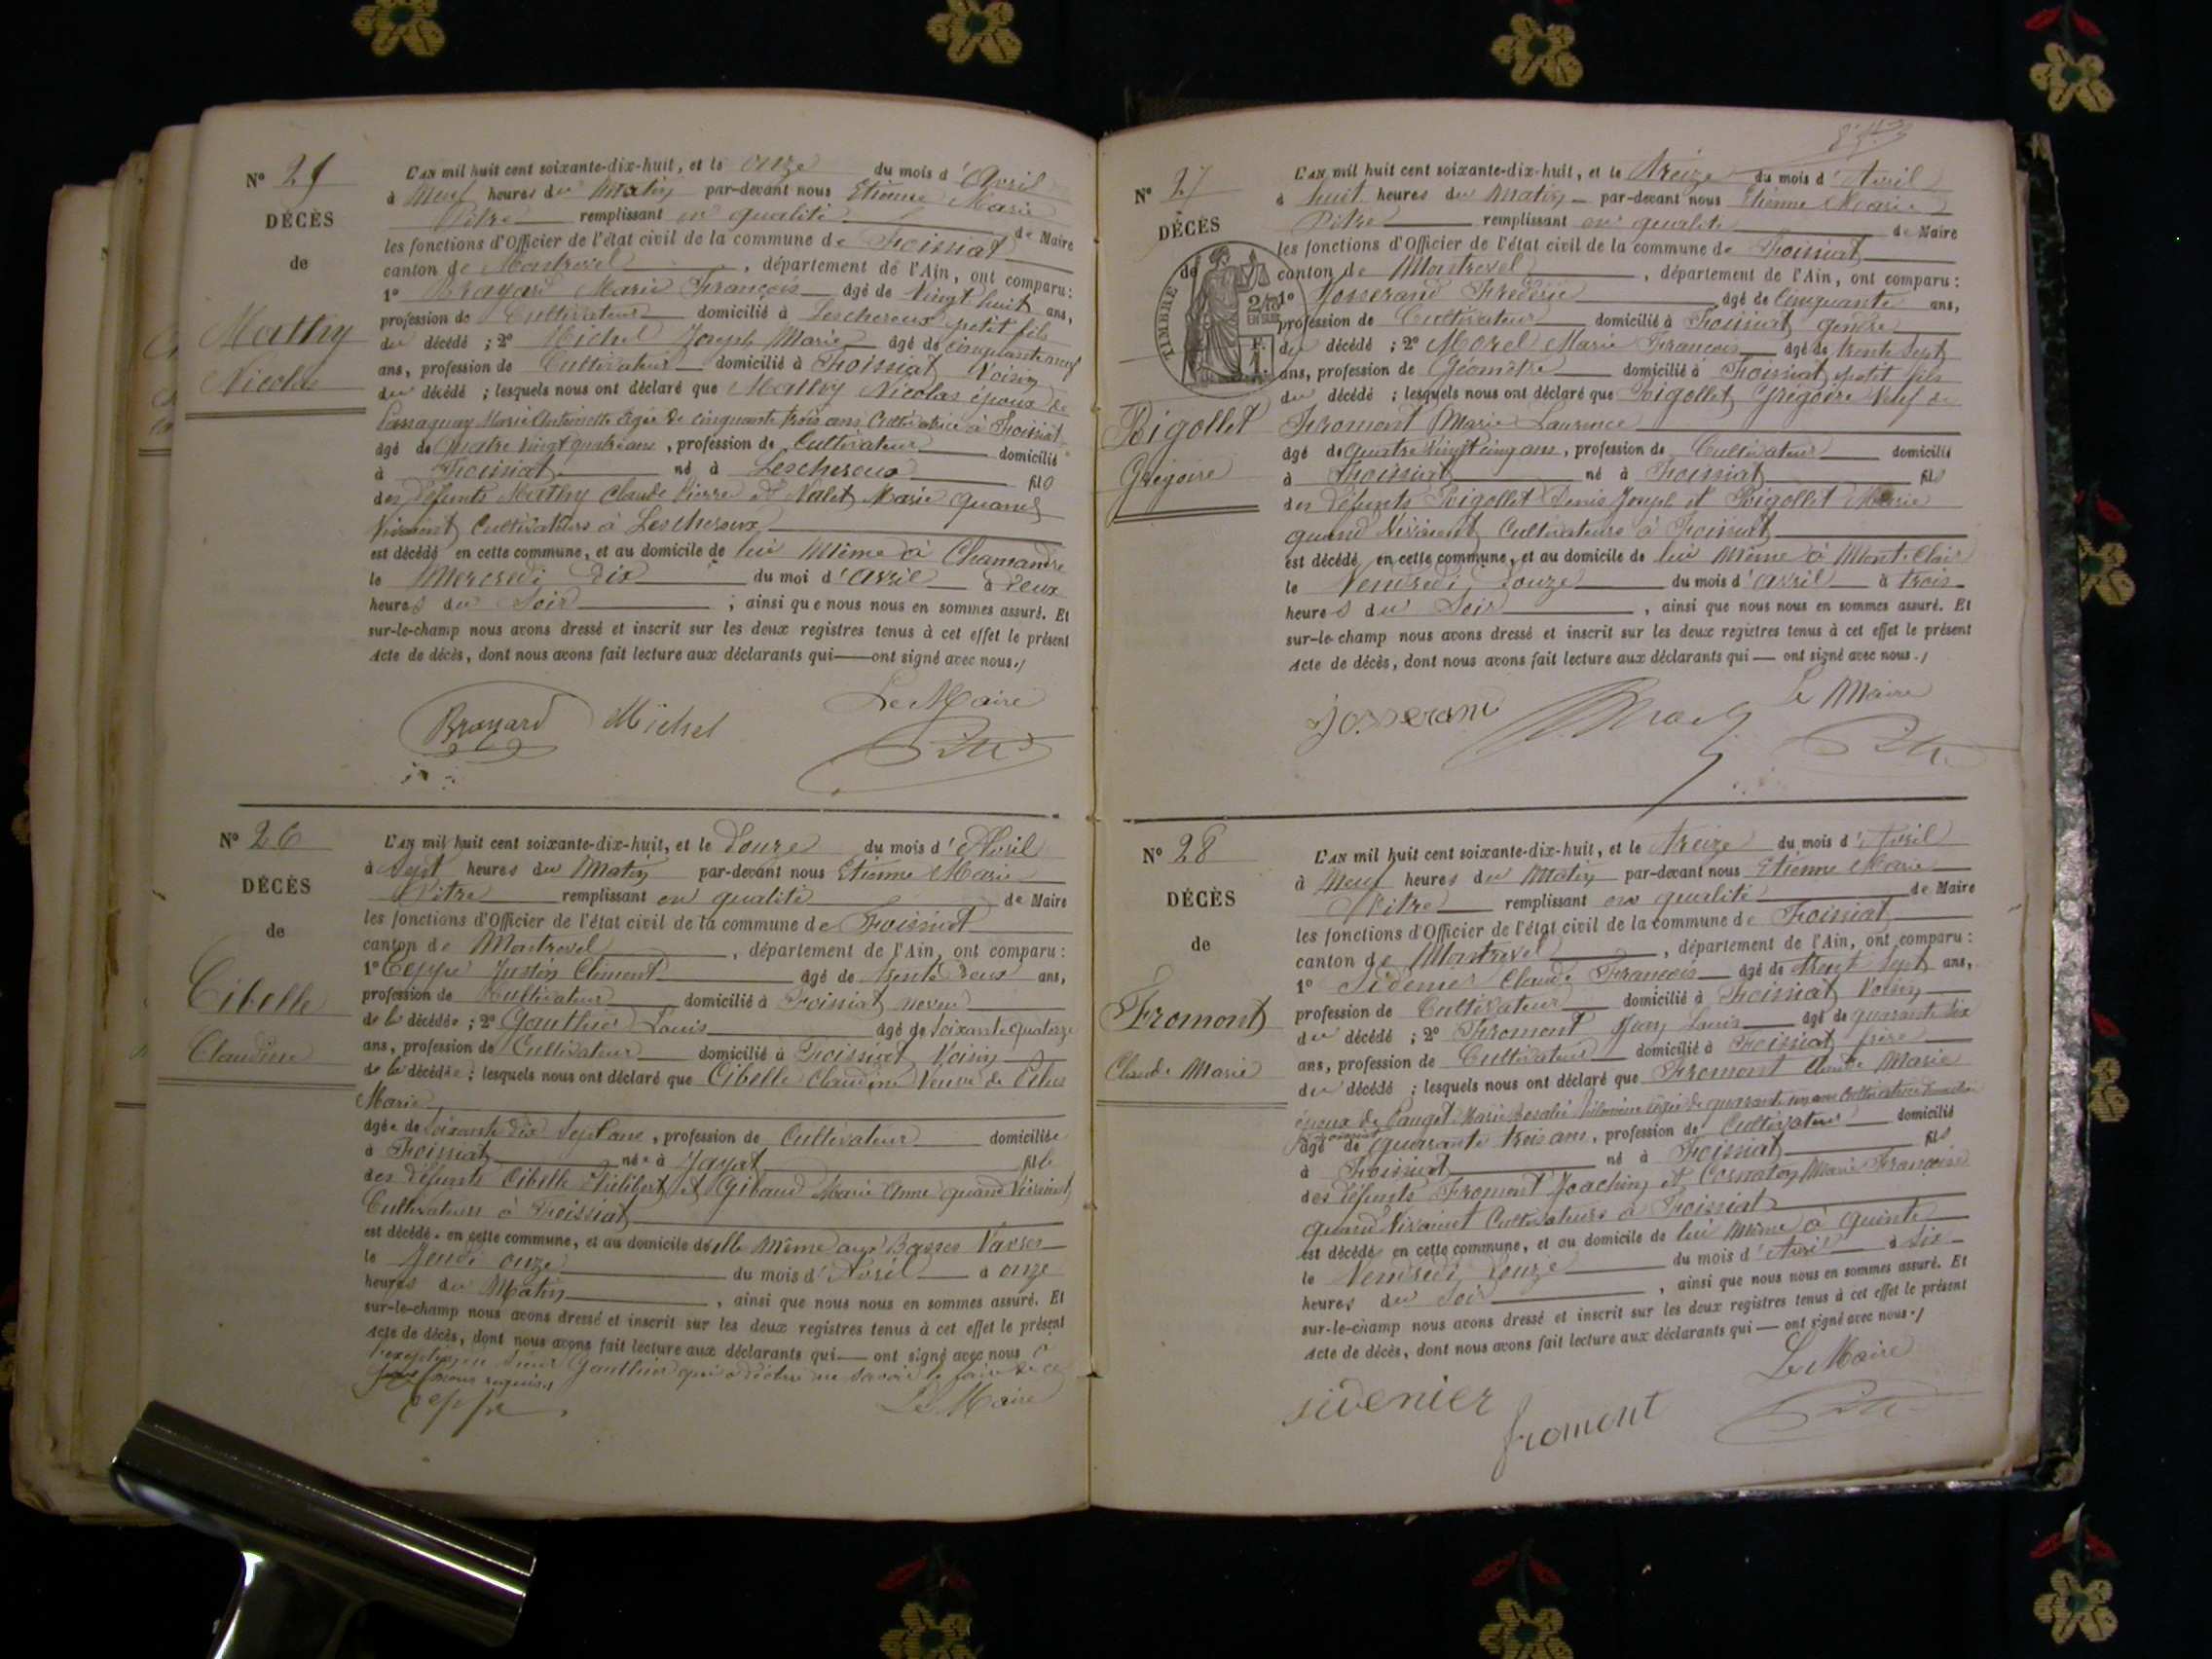 N° 25
DÉCÈS
de
Mathy
Nicolas
L'AN mil huit cent soixante-dix-huit, et le onze du mois d'Avril
à Neuf heures du Matin par-devant nous Etienne Marie
Pitre remplissant en qualité de Maire
les fonctions d'Officier de l'état civil de la commune de Foissiat
canton de Montrevel, département de l'Ain, ont comparu:
1° Brayard Marie François âgé de Vingt huit ans,
profession de Cultivateur domicilié à Lescheroux petit fils
du décédé ; 2° Michel Joseph Marie âgé de cinquante neuf
ans, profession de Cultivateur domicilié à Foissiat Voisin
du décédé ; lesquels nous ont déclaré que Mathy Nicolas époux de
Marie Antoinette âgée de cinquante trois ans Cultivatrice à Foissiat
âgé de quatre vingt quatre ans, profession de Cultivateur domicilié
à Foissiat né à Lescheroux fils
des défunts Mathy Claude Pierre et Nalet Marie quand
Vivaient Cultivateurs à Lescheroux
est décédé en cette commune, et au domicile de lui Même à Chamandre
le Mercredi dix du moi d'avril à deux
heures du Soir ; ainsi que nous nous en sommes assuré. Et
sur-le-champ nous avons dressé et inscrit sur les deux registres tenus à cet effet le présent
acte de décès, dont nous avons fait lecture aux déclarants qui — ont signé avec nous./
Le Maire
Brayard Michel Pitre
N° 26
DÉCÈS
de
Cibelle
Claudine
L'AN mil huit cent soixante-dix-huit, et le douze du mois d'Avril
à Sept heures du Matin par-devant nous Etienne Marie
Pitre remplissant en qualité de Maire
les fonctions d'Officier de l'état civil de la commune de Foissiat
canton de Montrevel, département de l'Ain, ont comparu:
1° Ceppe Justin Clément âgé de trente deux ans,
profession de Cultivateur domicilié à Foissiat neveu
de la décédée ; 2° Gauthier Louis âgé de soixante quatorze
ans, profession de Cultivateur domicilié à Foissiat Voisin
de la décédée ; lesquels nous ont déclaré que Cibelle Claudine Veuve de
Marie
âgée de soixante dix Sept ans, profession de Cultivateur domiciliée
à Foissiat née à Jayat fille
des défunts Cibelle Philibert et Gibaud Marie Anne quand Vivaient
Cultivateurs à Foissiat
est décédée en cette commune, et au domicile d'elle Même aux Basses Vavres
le Jeudi onze du mois d'Avril à onze
heures du Matin, ainsi que nous nous en sommes assuré. Et
sur-le-champ nous avons dressé et inscrit sur les deux registres tenus à cet effet le présent
acte de décès, dont nous avons fait lecture aux déclarants qui — ont signé avec nous à
l'exception du sieur Gauthier qui a déclaré ne savoir le faire de ce
nous requis./
Ceppe Le Maire
N° 27
DÉCÈS
de
TIMBRE
2/10
EN SUS
F.
1.
Rigollet
Grégoire
L'AN mil huit cent soixante-dix-huit, et le treize du mois d'Avril
à huit heures du Matin par-devant nous Etienne Marie
Pitre remplissant en qualité de Maire
les fonctions d'Officier de l'état civil de la commune de Foissiat
canton de Montrevel, département de l'Ain, ont comparu:
1° Josserand Frédéric âgé de Cinquante ans,
profession de Cultivateur domicilié à Foissiat gendre
du décédé ; 2° Morel Marie François âgé de trente Sept
ans, profession de Géomètre domicilié à Foissiat petit fils
du décédé ; lesquels nous ont déclaré que Rigollet Grégoire Veuf de
Fromont Marie Laurence
âgé de quatre vingt cinq ans, profession de Cultivateur domicilié
à Foissiat né à Foissiat fils
des défunts Rigollet Denis Joseph et Rigollet Marie
quand Vivaient Cultivateurs à Foissiat
est décédé en cette commune, et au domicile de lui Même à Mont-Clair
le Vendredi douze du mois d'avril à trois
heures du Soir, ainsi que nous nous en sommes assuré. Et
sur-le-champ nous avons dressé et inscrit sur les deux registres tenus à cet effet le présent
acte de décès, dont nous avons fait lecture aux déclarants qui — ont signé avec nous./
Le Maire
Josserand Morel Pitre
N° 28
DÉCÈS
de
Fromont
Claude Marie
L'AN mil huit cent soixante-dix-huit, et le treize du mois d'Avril
à Neuf heures du Matin par-devant nous Etienne Marie
Pitre remplissant en qualité de Maire
les fonctions d'Officier de l'état civil de la commune de Foissiat
canton de Montrevel, département de l'Ain, ont comparu:
1° Sidenier Claude François âgé de trente Sept ans,
profession de Cultivateur domicilié à Foissiat Voisin
du décédé ; 2° Fromont Jean Louis âgé de quarante six
ans, profession de Cultivateur domicilié à Foissiat frère
du décédé ; lesquels nous ont déclaré que Fromont Claude Marie
époux de Pauget Marie Rosalie Philomène âgée de quarante un ans Cultivatrice
âgé de quarante trois ans, profession de Cultivateur domicilié
à Foissiat né à Foissiat fils
des défunts Fromont Joachim et Cornaton Marie Françoise
quand Vivaient Cultivateurs à Foissiat
est décédé en cette commune, et au domicile de lui Même à Quinte
le Vendredi douze du mois d'Avril à Six
heures du Soir, ainsi que nous nous en sommes assuré. Et
sur-le-champ nous avons dressé et inscrit sur les deux registres tenus à cet effet le présent
acte de décès, dont nous avons fait lecture aux déclarants qui — ont signé avec nous./
Le Maire
sidenier fromont Pitre